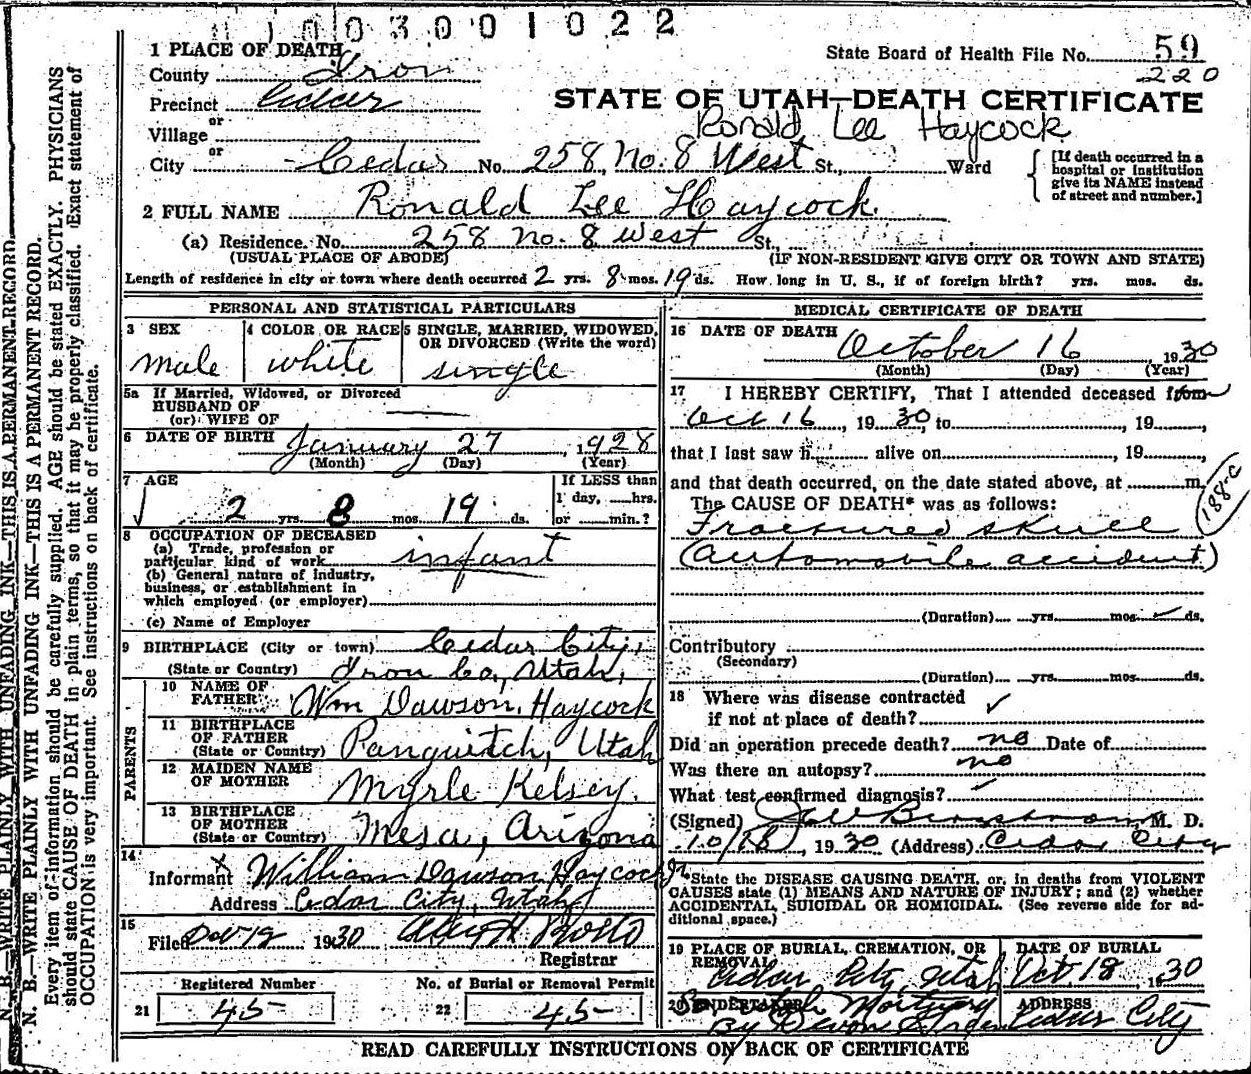 1003001022
1 PLACE OF DEATH
State Board of Health File No. 59
220
County Iron
Precinct Cedar
STATE OF UTAH—DEATH CERTIFICATE
or
Village
Ronald Lee Haycock
or
City Cedar No. 258 No. 8 West St., Ward
[If death occurred in a hospital or institution give its NAME instead of street and number.]
2 FULL NAME Ronald Lee Haycock.
(a) Residence. No. 258 No. 8 West St.,
(USUAL PLACE OF ABODE) (IF NON-RESIDENT GIVE CITY OR TOWN AND STATE)
Length of residence in city or town where death occurred 2 yrs. 8 mos. 19 ds. How long in U. S., if of foreign birth? yrs. mos. ds.
PERSONAL AND STATISTICAL PARTICULARS
3 SEX
male
4 COLOR OR RACE
white
5 SINGLE, MARRIED, WIDOWED,
OR DIVORCED (Write the word)
single
5a If Married, Widowed, or Divorced
HUSBAND OF
(or) WIFE OF
6 DATE OF BIRTH January 27, 1928
(Month) (Day) (Year)
7 AGE
2 yrs. 8 mos. 19 ds.
If LESS than
1 day, hrs.
or min.?
8 OCCUPATION OF DECEASED
(a) Trade, profession or
particular kind of work infant
(b) General nature of industry,
business, or establishment in
which employed (or employer)
(c) Name of Employer
9 BIRTHPLACE (City or town) Cedar City,
(State or Country) Iron Co., Utah,
PARENTS
10 NAME OF
FATHER Wm Dawson Haycock
11 BIRTHPLACE
OF FATHER
(State or Country) Panguitch, Utah
12 MAIDEN NAME
OF MOTHER Myrle Kelsey.
13 BIRTHPLACE
OF MOTHER
(State or Country) Mesa, Arizona
14
Informant William Dawson Haycock Jr.
Address Cedar City, Utah
15
Filed 1930
Registrar
Registered Number
21 45
No. of Burial or Removal Permit
22 45
MEDICAL CERTIFICATE OF DEATH
16 DATE OF DEATH
October 16, 1930
(Month) (Day) (Year)
17 I HEREBY CERTIFY, That I attended deceased from
Oct 16, 1930, to , 19 ,
that I last saw h alive on , 19 ,
and that death occurred, on the date stated above, at m.
The CAUSE OF DEATH* was as follows:
188-c
Fractured skull
(automobile accident)
(Duration) yrs. mos. ds.
Contributory
(Secondary)
(Duration) yrs. mos. ds.
18 Where was disease contracted
if not at place of death?
Did an operation precede death? no Date of
Was there an autopsy? no
What test confirmed diagnosis?
(Signed) M. D.
1930 (Address) Cedar City
*State the DISEASE CAUSING DEATH, or, in deaths from VIOLENT
CAUSES state (1) MEANS AND NATURE OF INJURY; and (2) whether
ACCIDENTAL, SUICIDAL OR HOMICIDAL. (See reverse side for ad-
ditional space.)
19 PLACE OF BURIAL, CREMATION, OR
REMOVAL
Cedar City, Utah
DATE OF BURIAL
Oct. 18, 1930
20 UNDERTAKER
Mortuary
By Devon
ADDRESS
Cedar City
READ CAREFULLY INSTRUCTIONS ON BACK OF CERTIFICATE
N. B.—WRITE PLAINLY WITH UNFADING INK—THIS IS A PERMANENT RECORD.
N. B.—WRITE PLAINLY WITH UNFADING INK—THIS IS A PERMANENT RECORD.
Every item of information should be carefully supplied. AGE should be stated EXACTLY. PHYSICIANS
should state CAUSE OF DEATH in plain terms, so that it may be properly classified. Exact statement of
OCCUPATION is very important. See instructions on back of certificate.